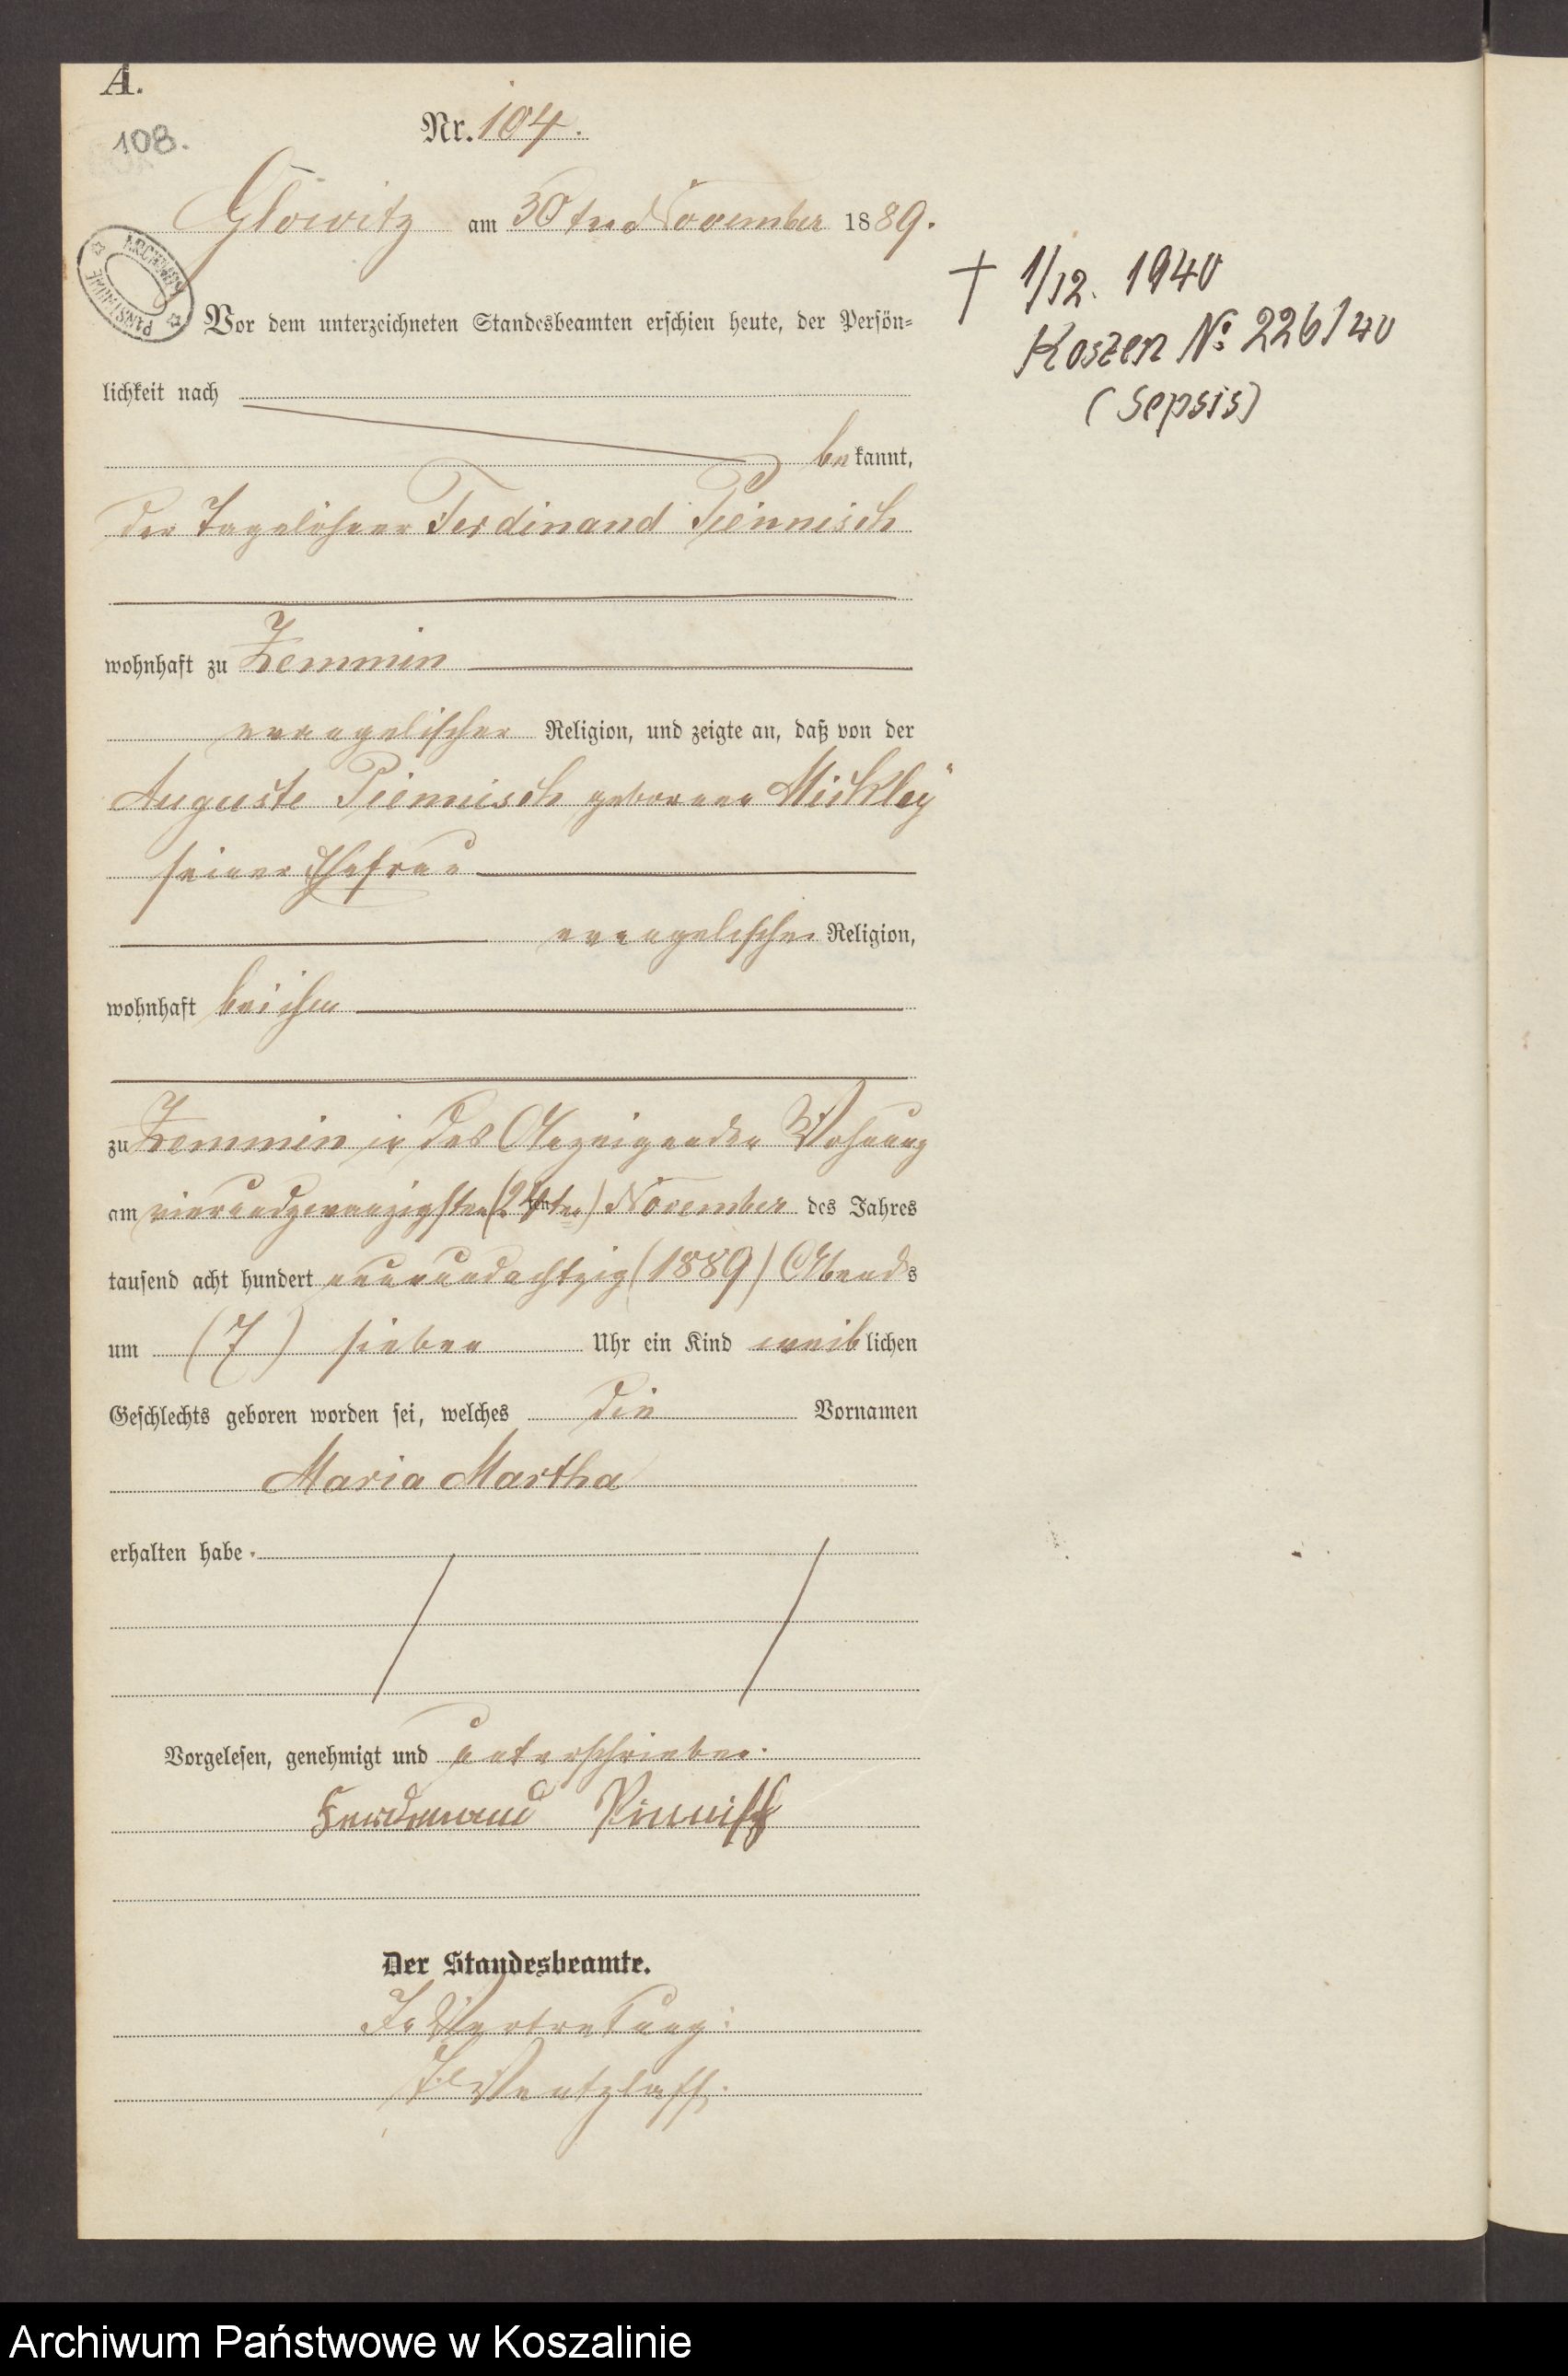 A.
108.
Nr. 104.
Glowitz am 30ten November 1889.
ARCHIWUM PAŃSTWOWE
† 1/12. 1940
Koszen No 226/40
(Sepsis)
Vor dem unterzeichneten Standesbeamten erschien heute, der Persön-
lichkeit nach
bekannt,
der Tagelöhner Ferdinand Piennisch
wohnhaft zu Zemmin
evangelischer Religion, und zeigte an, daß von der
Auguste Piennisch geborenen Mickley
seiner Ehefrau
evangelischer Religion,
wohnhaft bei ihm
zu Zemmin in des Anzeigenden Wohnung
am vierundzwanzigsten (24ten) November des Jahres
tausend acht hundert neunundachtzig (1889) Abends
um (7) sieben Uhr ein Kind weiblichen
Geschlechts geboren worden sei, welches die Vornamen
Maria Martha
erhalten habe.
Vorgelesen, genehmigt und unterschrieben.
Ferdinand Pinnisch
Der Standesbeamte.
In Vertretung:
Wentzlaff.
Archiwum Państwowe w Koszalinie